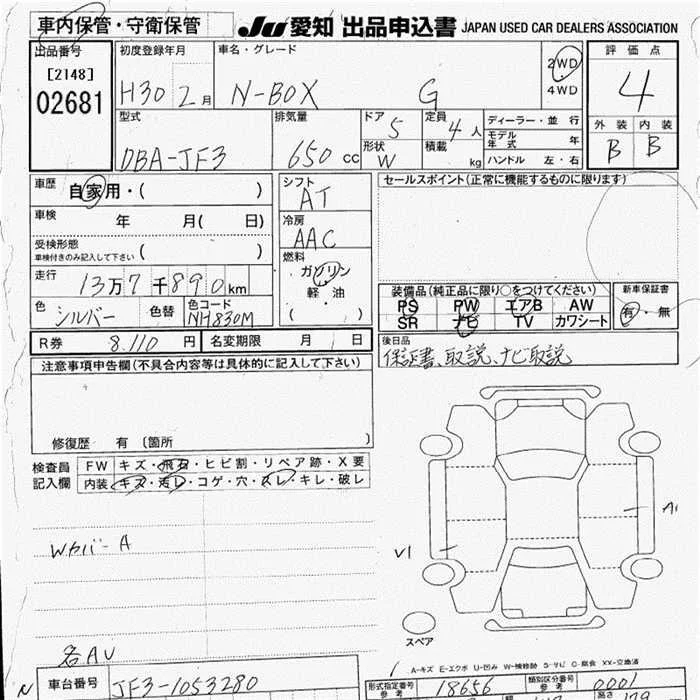 車内保管・守衛保管
JU 愛知 出品申込書 JAPAN USED CAR DEALERS ASSOCIATION
出品番号
[2148]
02681
初度登録年月
H30 2月
車名・グレード
N-BOX G
2WD
4WD
評価点
4
外装 内装
B B
型式
DBA-JF3
排気量
650 cc
ドア 5
形状 W
定員 4人
積載 kg
ディーラー・並行
モデル年式 年
ハンドル 左・右
車歴 自家用・( )
車検 年 月( 日)
受検形態
車検付きのみ記入して下さい ( )
走行 13万7千890km
色 シルバー 色替
色コード
NH830M
シフト
AT
冷房
AAC
燃料
ガソリン
軽油
( )
セールスポイント(正常に機能するものに限ります)
装備品(純正品に限り○をつけてください)
PS PW エアB AW
SR ナビ TV カワシート
新車保証書
有・無
R券 8,110円
名変期限 月 日
後日品
保証書、取説、ナビ取説
注意事項申告欄(不具合内容等は具体的に記入して下さい)
修復歴 有 〔箇所 〕
検査員
記入欄
FW キズ・飛石・ヒビ割・リペア跡・X要
内装 キズ・汚レ・コゲ・穴・スレ・キレ・破レ
Wカバ-A
各AU
A1
V1
スペア
A-キズ E-エクボ U-凹み W-補修跡 S-サビ C-腐食 XX-交換済
N
車台番号 JF3-1053280
形式指定番号
参考
18656
類別区分番号
参考
0001